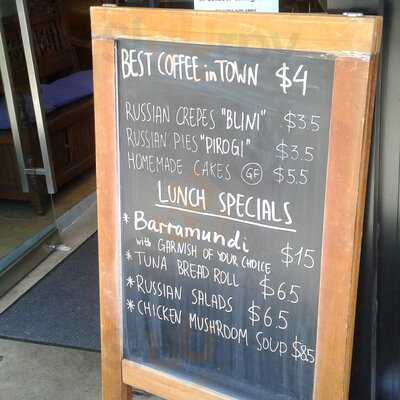 BEST COFFEE in TOWN $4
RUSSIAN CREPES "BLINI" $3.5
RUSSIAN PIES "PIROGI" $3.5
HOMEMADE CAKES GF $5.5
LUNCH SPECIALS
* Barramundi
with GARNISH OF YOUR CHOICE $15
* TUNA BREAD ROLL $6.5
* RUSSIAN SALADS $6.5
* CHICKEN MUSHROOM SOUP $8.5